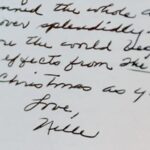 the whole
over splendidly
the world
effects from the
Christmas as y
Love,
Nelle